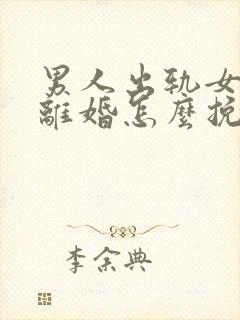 男人出轨女
離婚怎麼挽
李余典